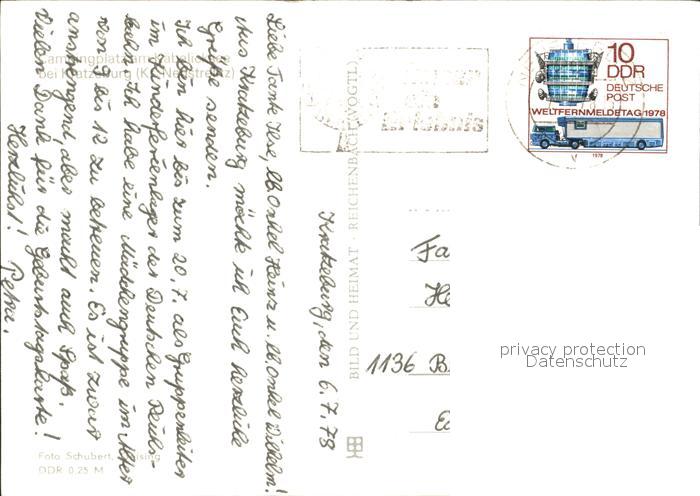 Kratzeburg, den 6.7.78
Liebe Tante Ilse, lb. Onkel Heinz u. lb. Onkel Wilhelm!
Aus Kratzeburg möchte ich Euch herzliche
Grüße senden.
Ich bin hier bis zum 20.7. als Gruppenleiter
im Kinderferienlager der Deutschen Reichs-
bahn. Ich habe eine Mädchengruppe im Alter
von 9 bis 12 zu betreuen. Es ist zwar
anstrengend, aber macht auch Spaß.
Vielen Dank für die Geburtstagskarte!
Herzlichst! Petra.
Campingplatz am Käbelicksee
bei Kratzeburg (Kr. Neustrelitz)
Foto Schubert,
DDR 0,25 M
BILD UND HEIMAT · REICHENBACH (VOGTL)
ein
Erlebnis
10
DDR
DEUTSCHE
POST
WELTFERNMELDETAG 1978
1978
Fa
He
1136 B
privacy protection
Datenschutz